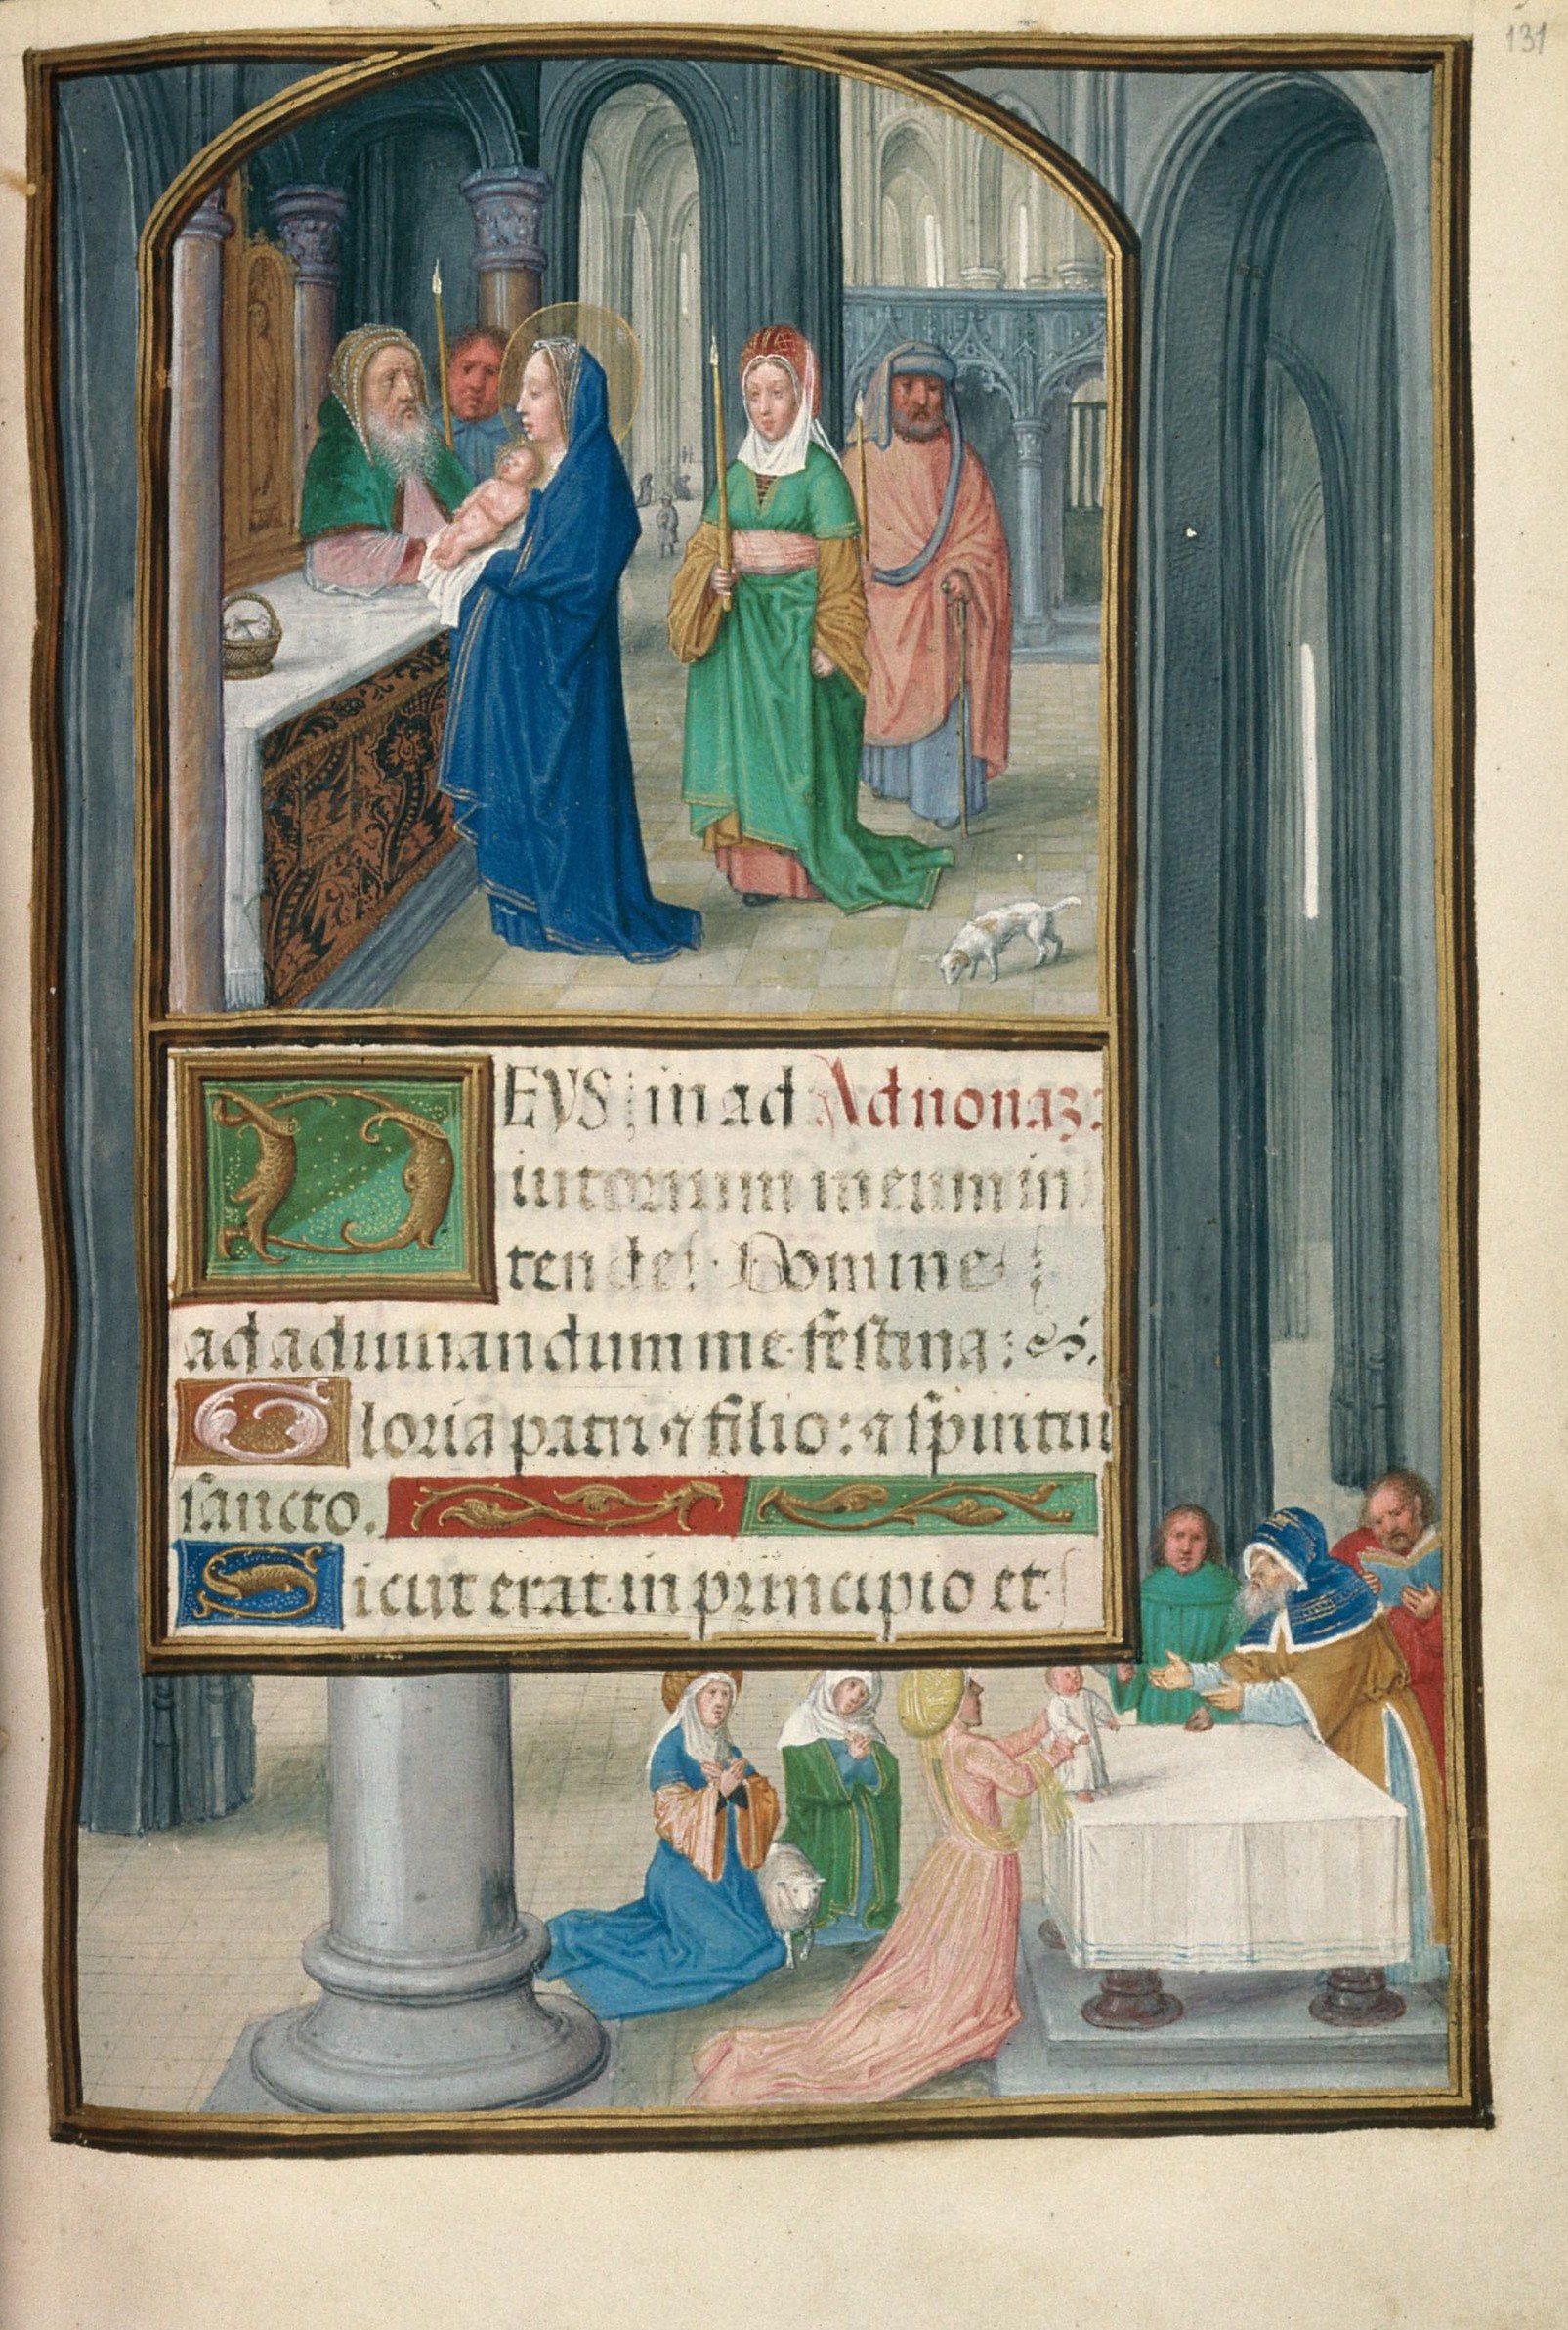 131
DEVS in ad Ad nonaz:
iutorium meum in
tende. Domine
ad adiuuandum me festina: &.
Gloria patri & filio: & spiritui
sancto.
Sicut erat in principio et